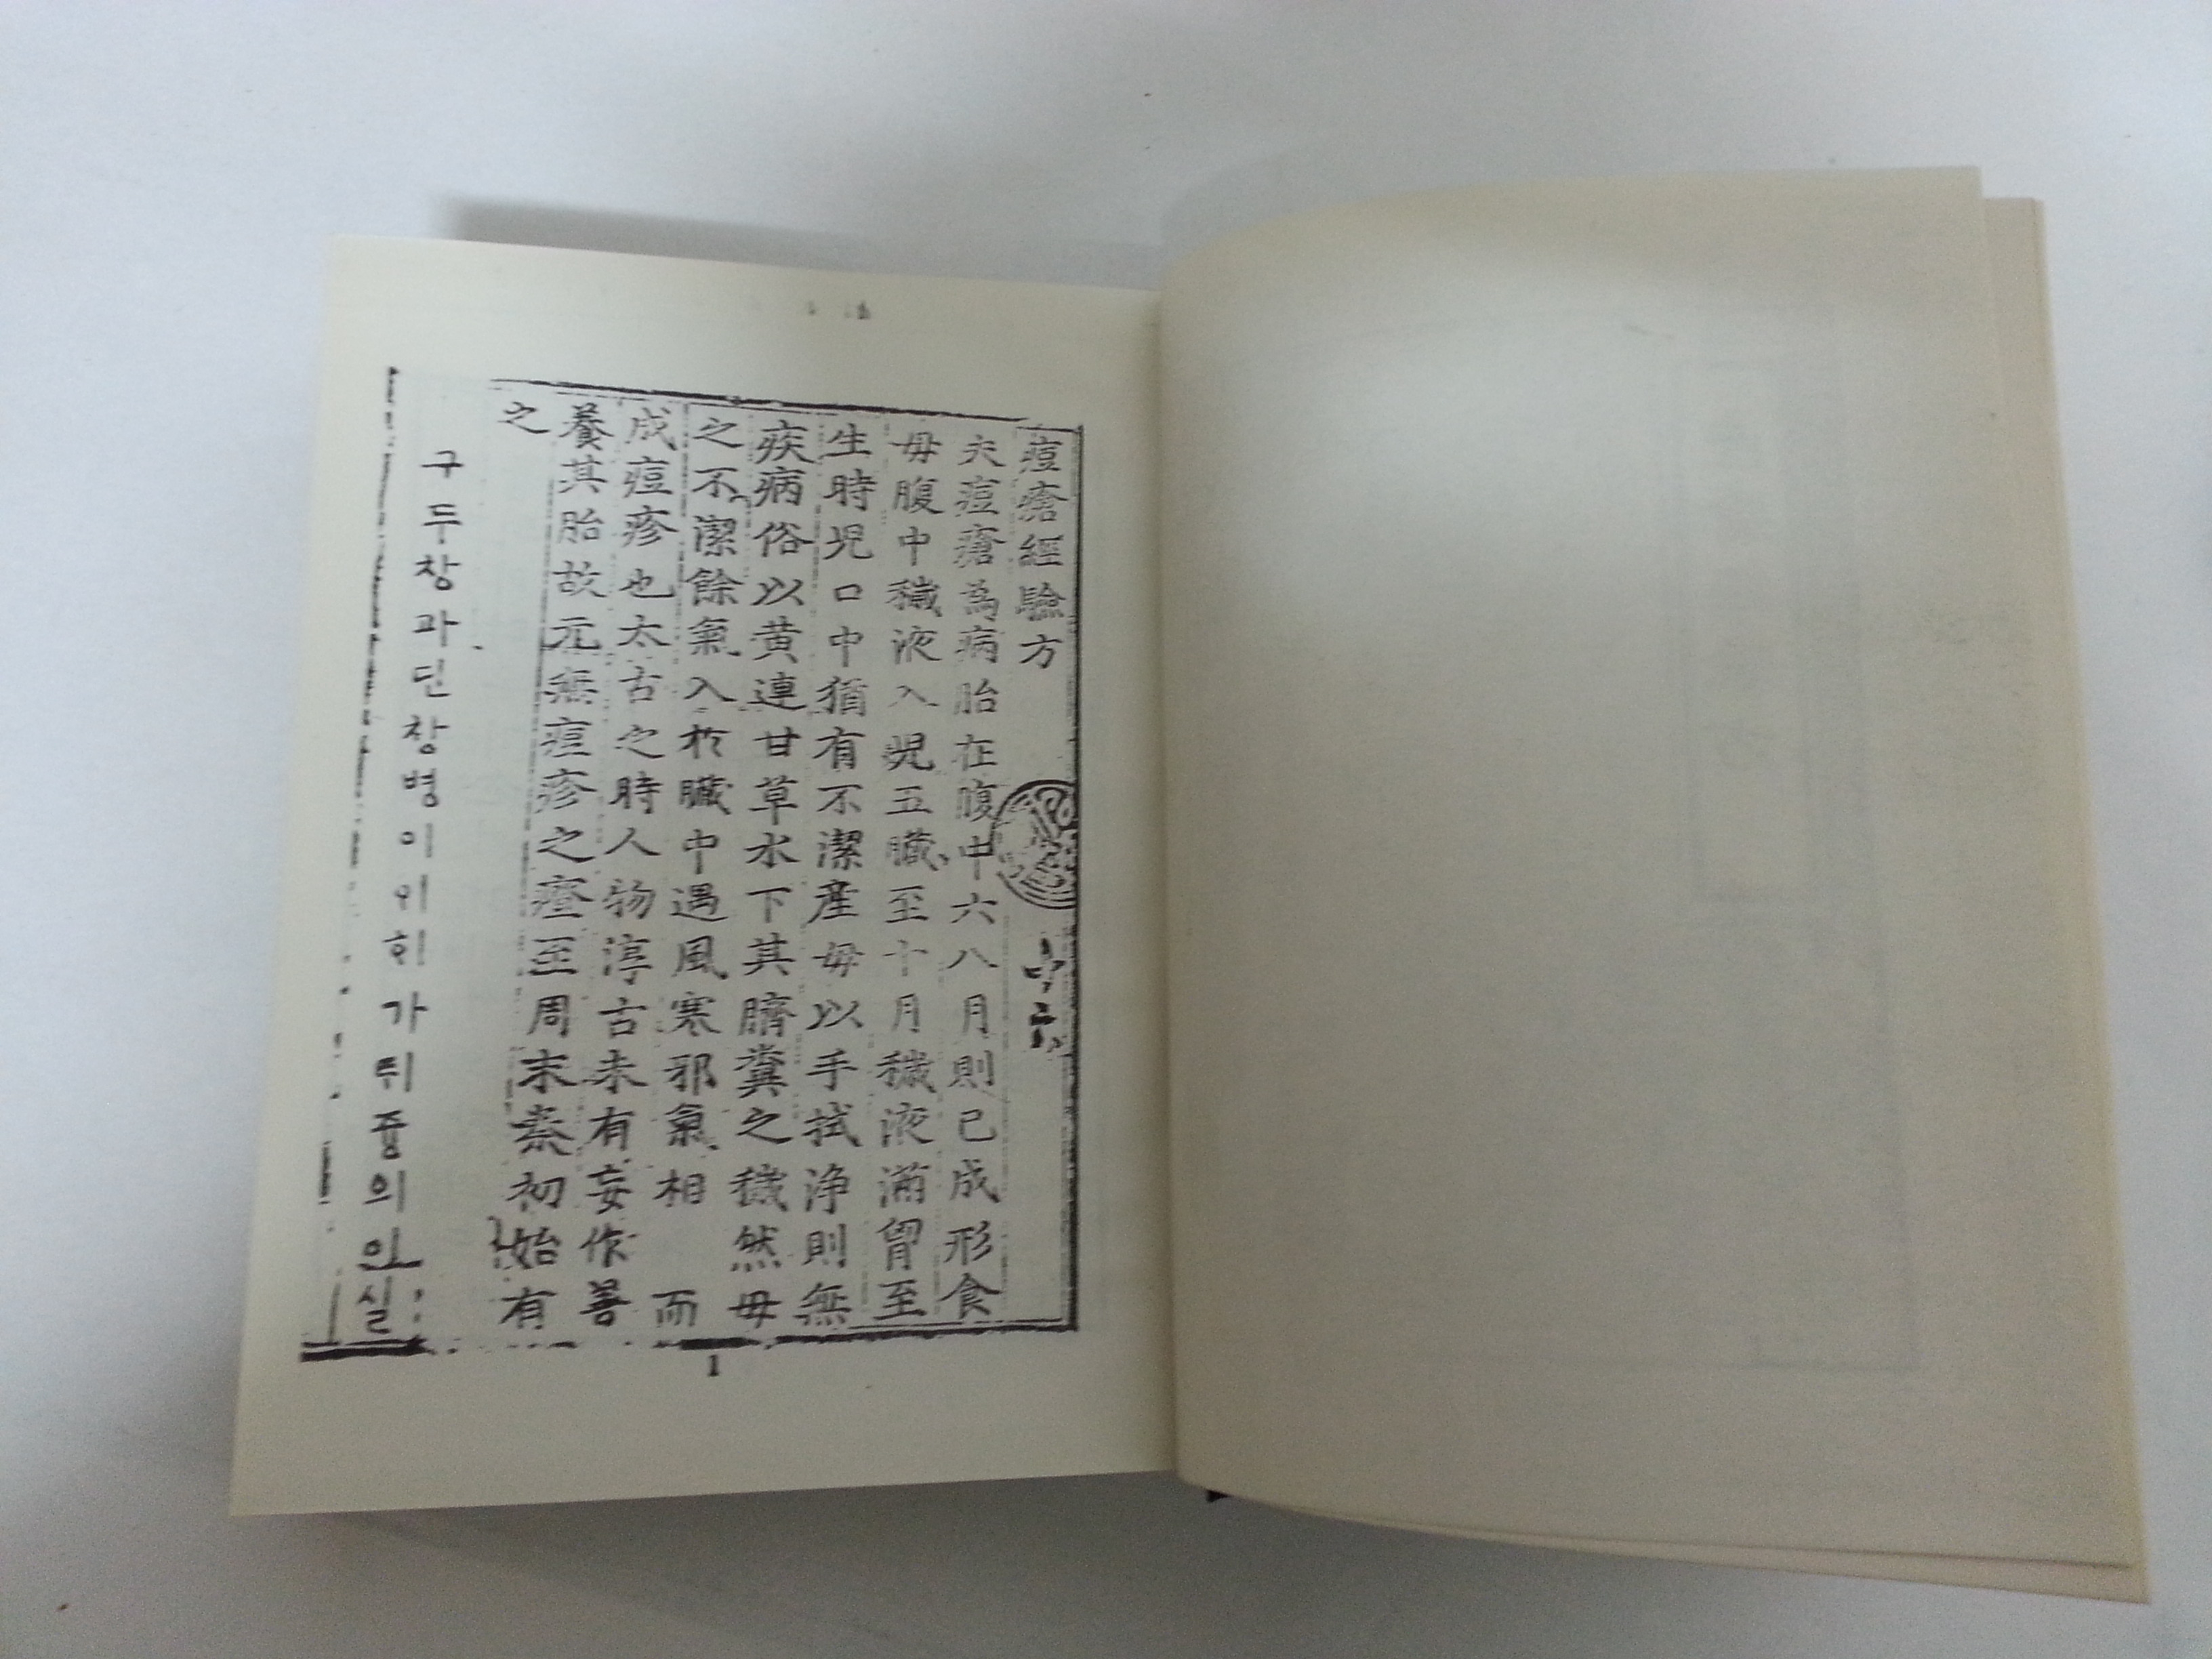 痘瘡經驗方
夫痘瘡為病胎在腹中六八月則已成形食
母腹中穢液入児五臟至十月穢液滿胃至
生時児口中猶有不潔産母以手拭浄則無
疾病俗以黄連甘草水下其臍糞之穢然毋
之不潔餘氣入於臟中遇風寒邪氣相而
成痘疹也太古之時人物淳古未有妄作善
養其胎故元無痘疹之至周末秦初始有
之
구두창과딘창병이이회가튀죵의의실
1